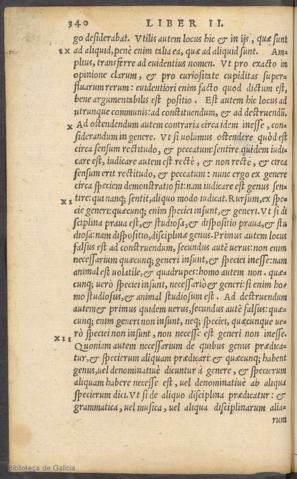 340 LIBER II.
go desiderabat. Vtilis autem locus hic & in ijs, quæ sunt
IX ad aliquid, penè enim talia ea, quæ ad aliquid sunt. Am-
plius, transferre ad euidentius nomen. Vt pro exacto in
opinione clarum, & pro curiositate cupiditas super-
fluarum rerum: euidentiori enim facto quod dictum est,
bene argumentabilis est positio. Est autem hic locus ad
utrunque communis: ad construendum, & ad destruendũ.
X Ad ostendendum autem contraria circa idem inesse, con-
siderandum in genere. Vt si uolumus ostendere quòd est
circa sensum rectitudo, & peccatum: sentire quidem iudi-
care est, iudicare autem est rectè, & non rectè, & circa
sensum erit rectitudo, & peccatum: nunc ergo ex genere
circa speciem demonstratio fit: nam iudicare est genus sen-
XI tire: qui nanq; sentit, aliquo modo iudicat. Rursum, ex spe-
cie generi: quæcunq; enim speciei insunt, & generi. Vt si di
sciplina praua est, & studiosa, & dispositio praua, & stu
diosa: nam dispositio, disciplinæ genus. Primus autem locus
falsus est ad construendum, secundus autẽ uerus: non enim
necessarium quæcunq; generi insunt, & speciei inesse: nam
animal est uolatile, & quadrupes: homo autem non. quæ-
cunq; uerò speciei insunt, necessariò & generi: si enim ho-
mo studiosus, & animal studiosum est. Ad destruendum
autem primus quidem uerus, secundus autẽ falsus: quæ-
cunq; enim generi non insunt, neq; speciei, quæcunque ue-
rò speciei non insunt, non necesse est generi non inesse.
XII Quoniam autem necessarium de quibus genus prædica-
tur, & specierum aliquam prædicari: & quæcunq; habent
genus, uel denominatiuè dicuntur à genere, & specierum
aliquam habere necesse est, uel denominatiuè ab aliqua
specierum dici. Vt si de aliquo disciplina prædicatur: &
grammatica, uel musica, uel aliqua disciplinarum alia-
rum
Biblioteca de Galicia